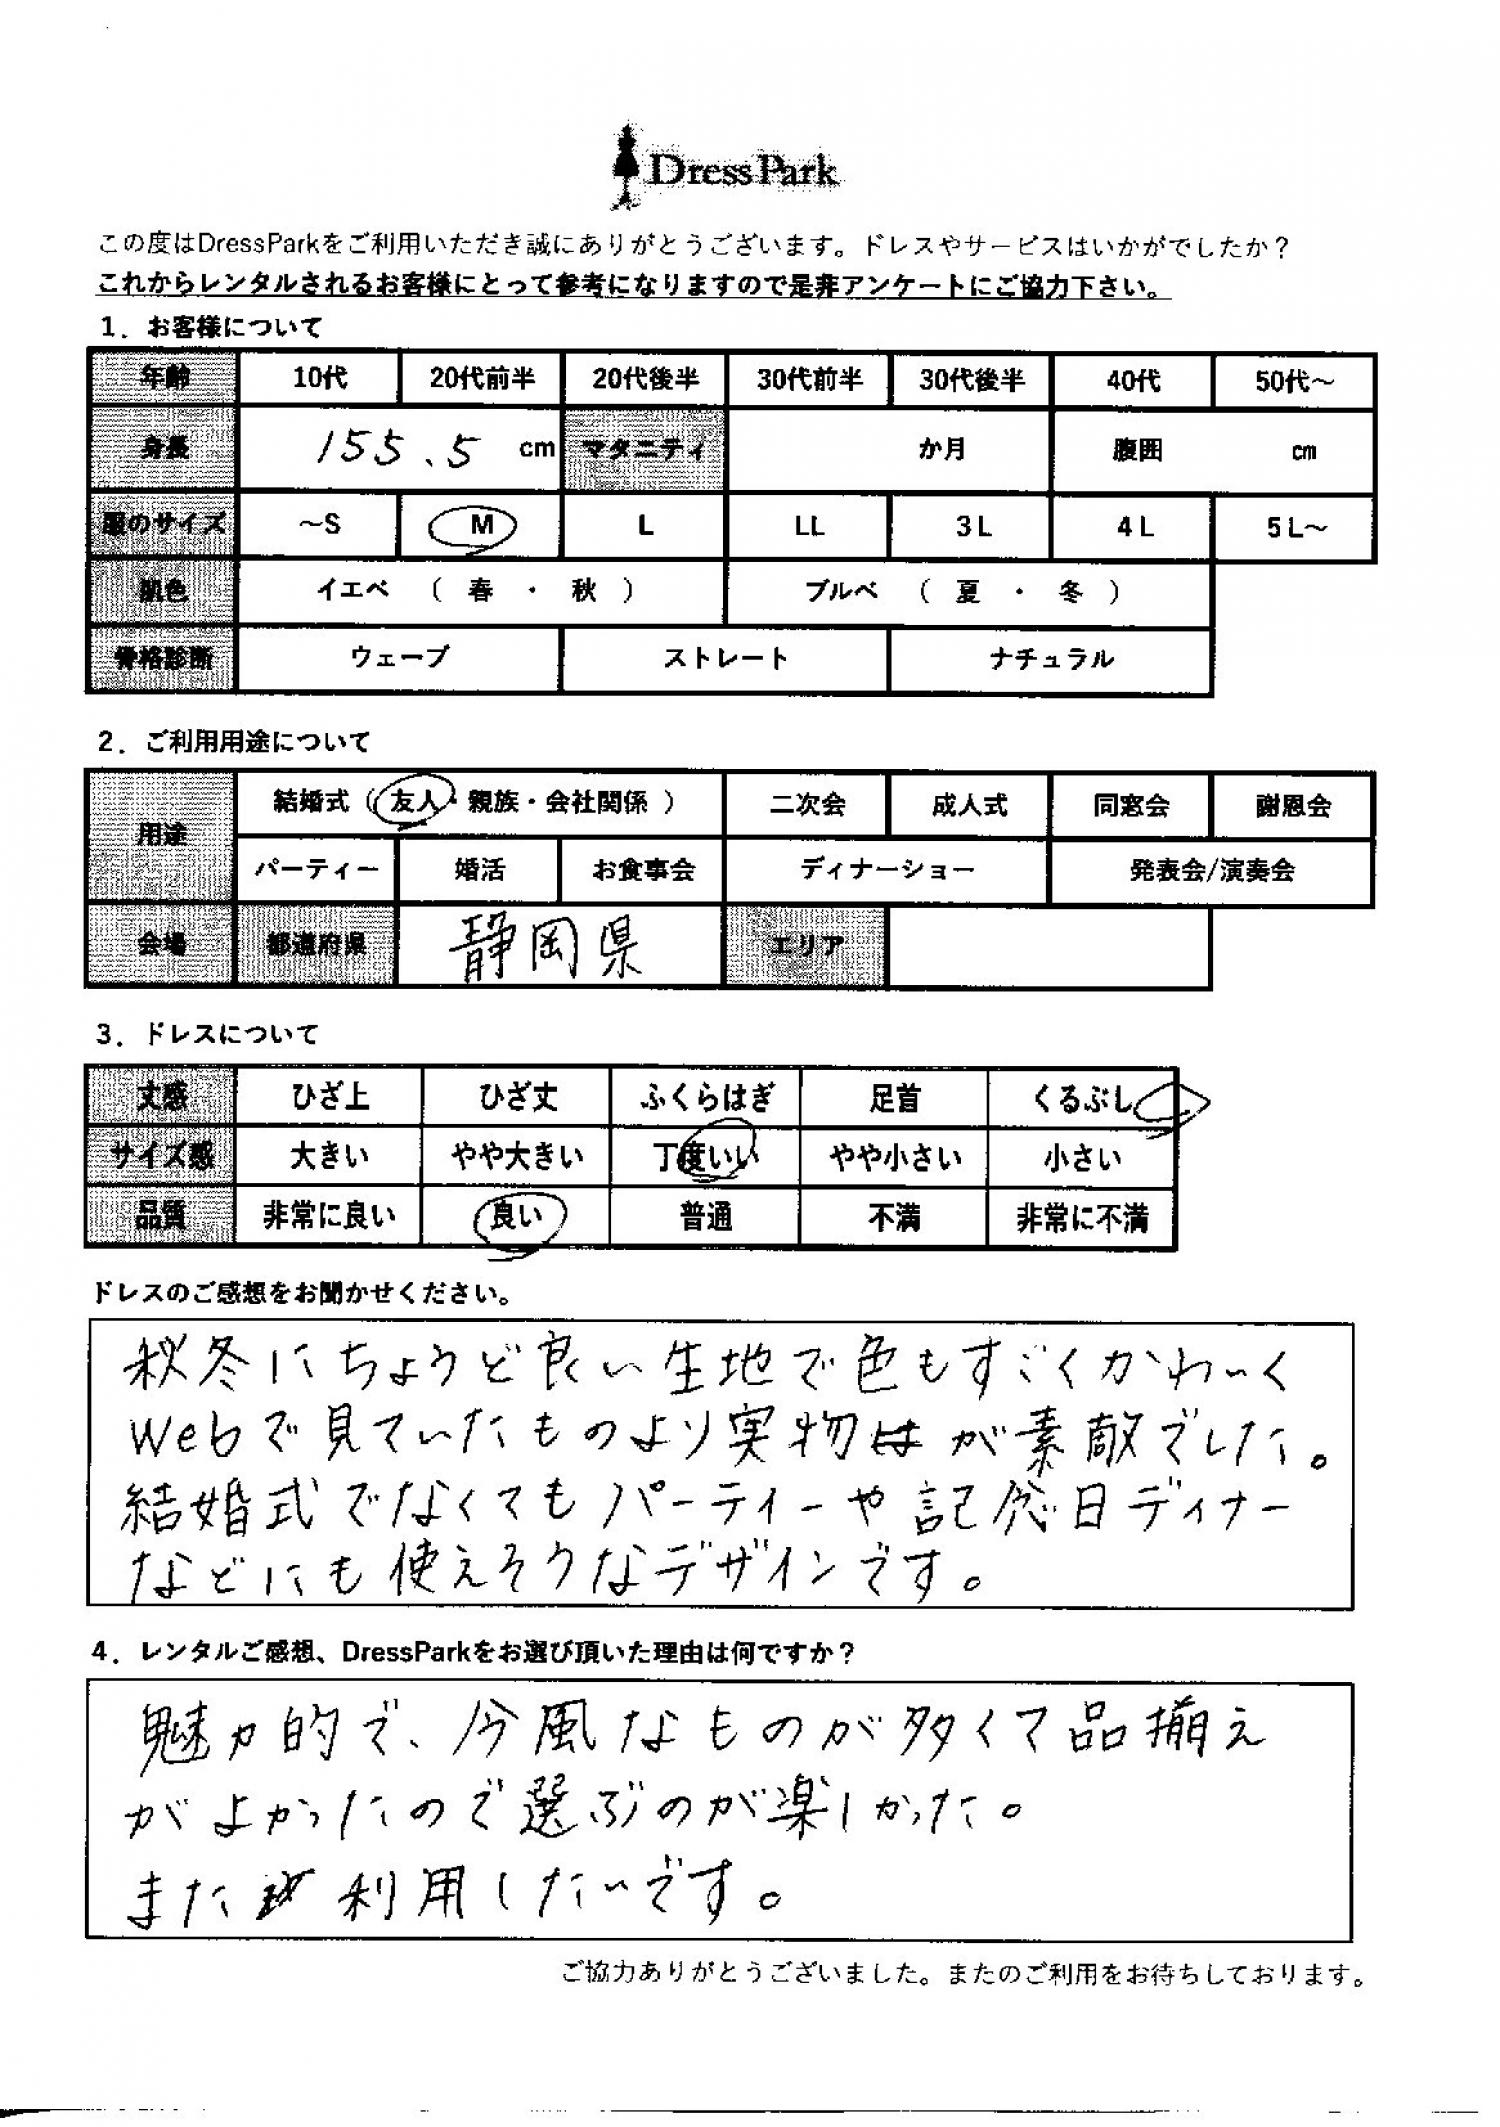 DressPark
この度はDressParkをご利用いただき誠にありがとうございます。ドレスやサービスはいかがでしたか？
これからレンタルされるお客様にとって参考になりますので是非アンケートにご協力下さい。
1．お客様について
年齢 10代 20代前半 20代後半 30代前半 30代後半 40代 50代～
身長 155.5 cm マタニティ か月 腹囲 cm
服のサイズ ～S M L LL 3L 4L 5L～
肌色 イエベ （ 春 ・ 秋 ） ブルベ （ 夏 ・ 冬 ）
骨格診断 ウェーブ ストレート ナチュラル
2．ご利用用途について
用途 結婚式（ 友人・親族・会社関係 ） 二次会 成人式 同窓会 謝恩会
パーティー 婚活 お食事会 ディナーショー 発表会/演奏会
会場 都道府県 静岡県 エリア
3．ドレスについて
丈感 ひざ上 ひざ丈 ふくらはぎ 足首 くるぶし
サイズ感 大きい やや大きい 丁度いい やや小さい 小さい
品質 非常に良い 良い 普通 不満 非常に不満
ドレスのご感想をお聞かせください。
秋冬にちょうど良い生地で色もすごくかわいく
Webで見ていたものより実物はが素敵でした。
結婚式でなくてもパーティーや記念日ディナー
などにも使えそうなデザインです。
4．レンタルご感想、DressParkをお選び頂いた理由は何ですか？
魅力的で、今風なものが多くて品揃え
がよかったので選ぶのが楽しかった。
また利用したいです。
ご協力ありがとうございました。またのご利用をお待ちしております。